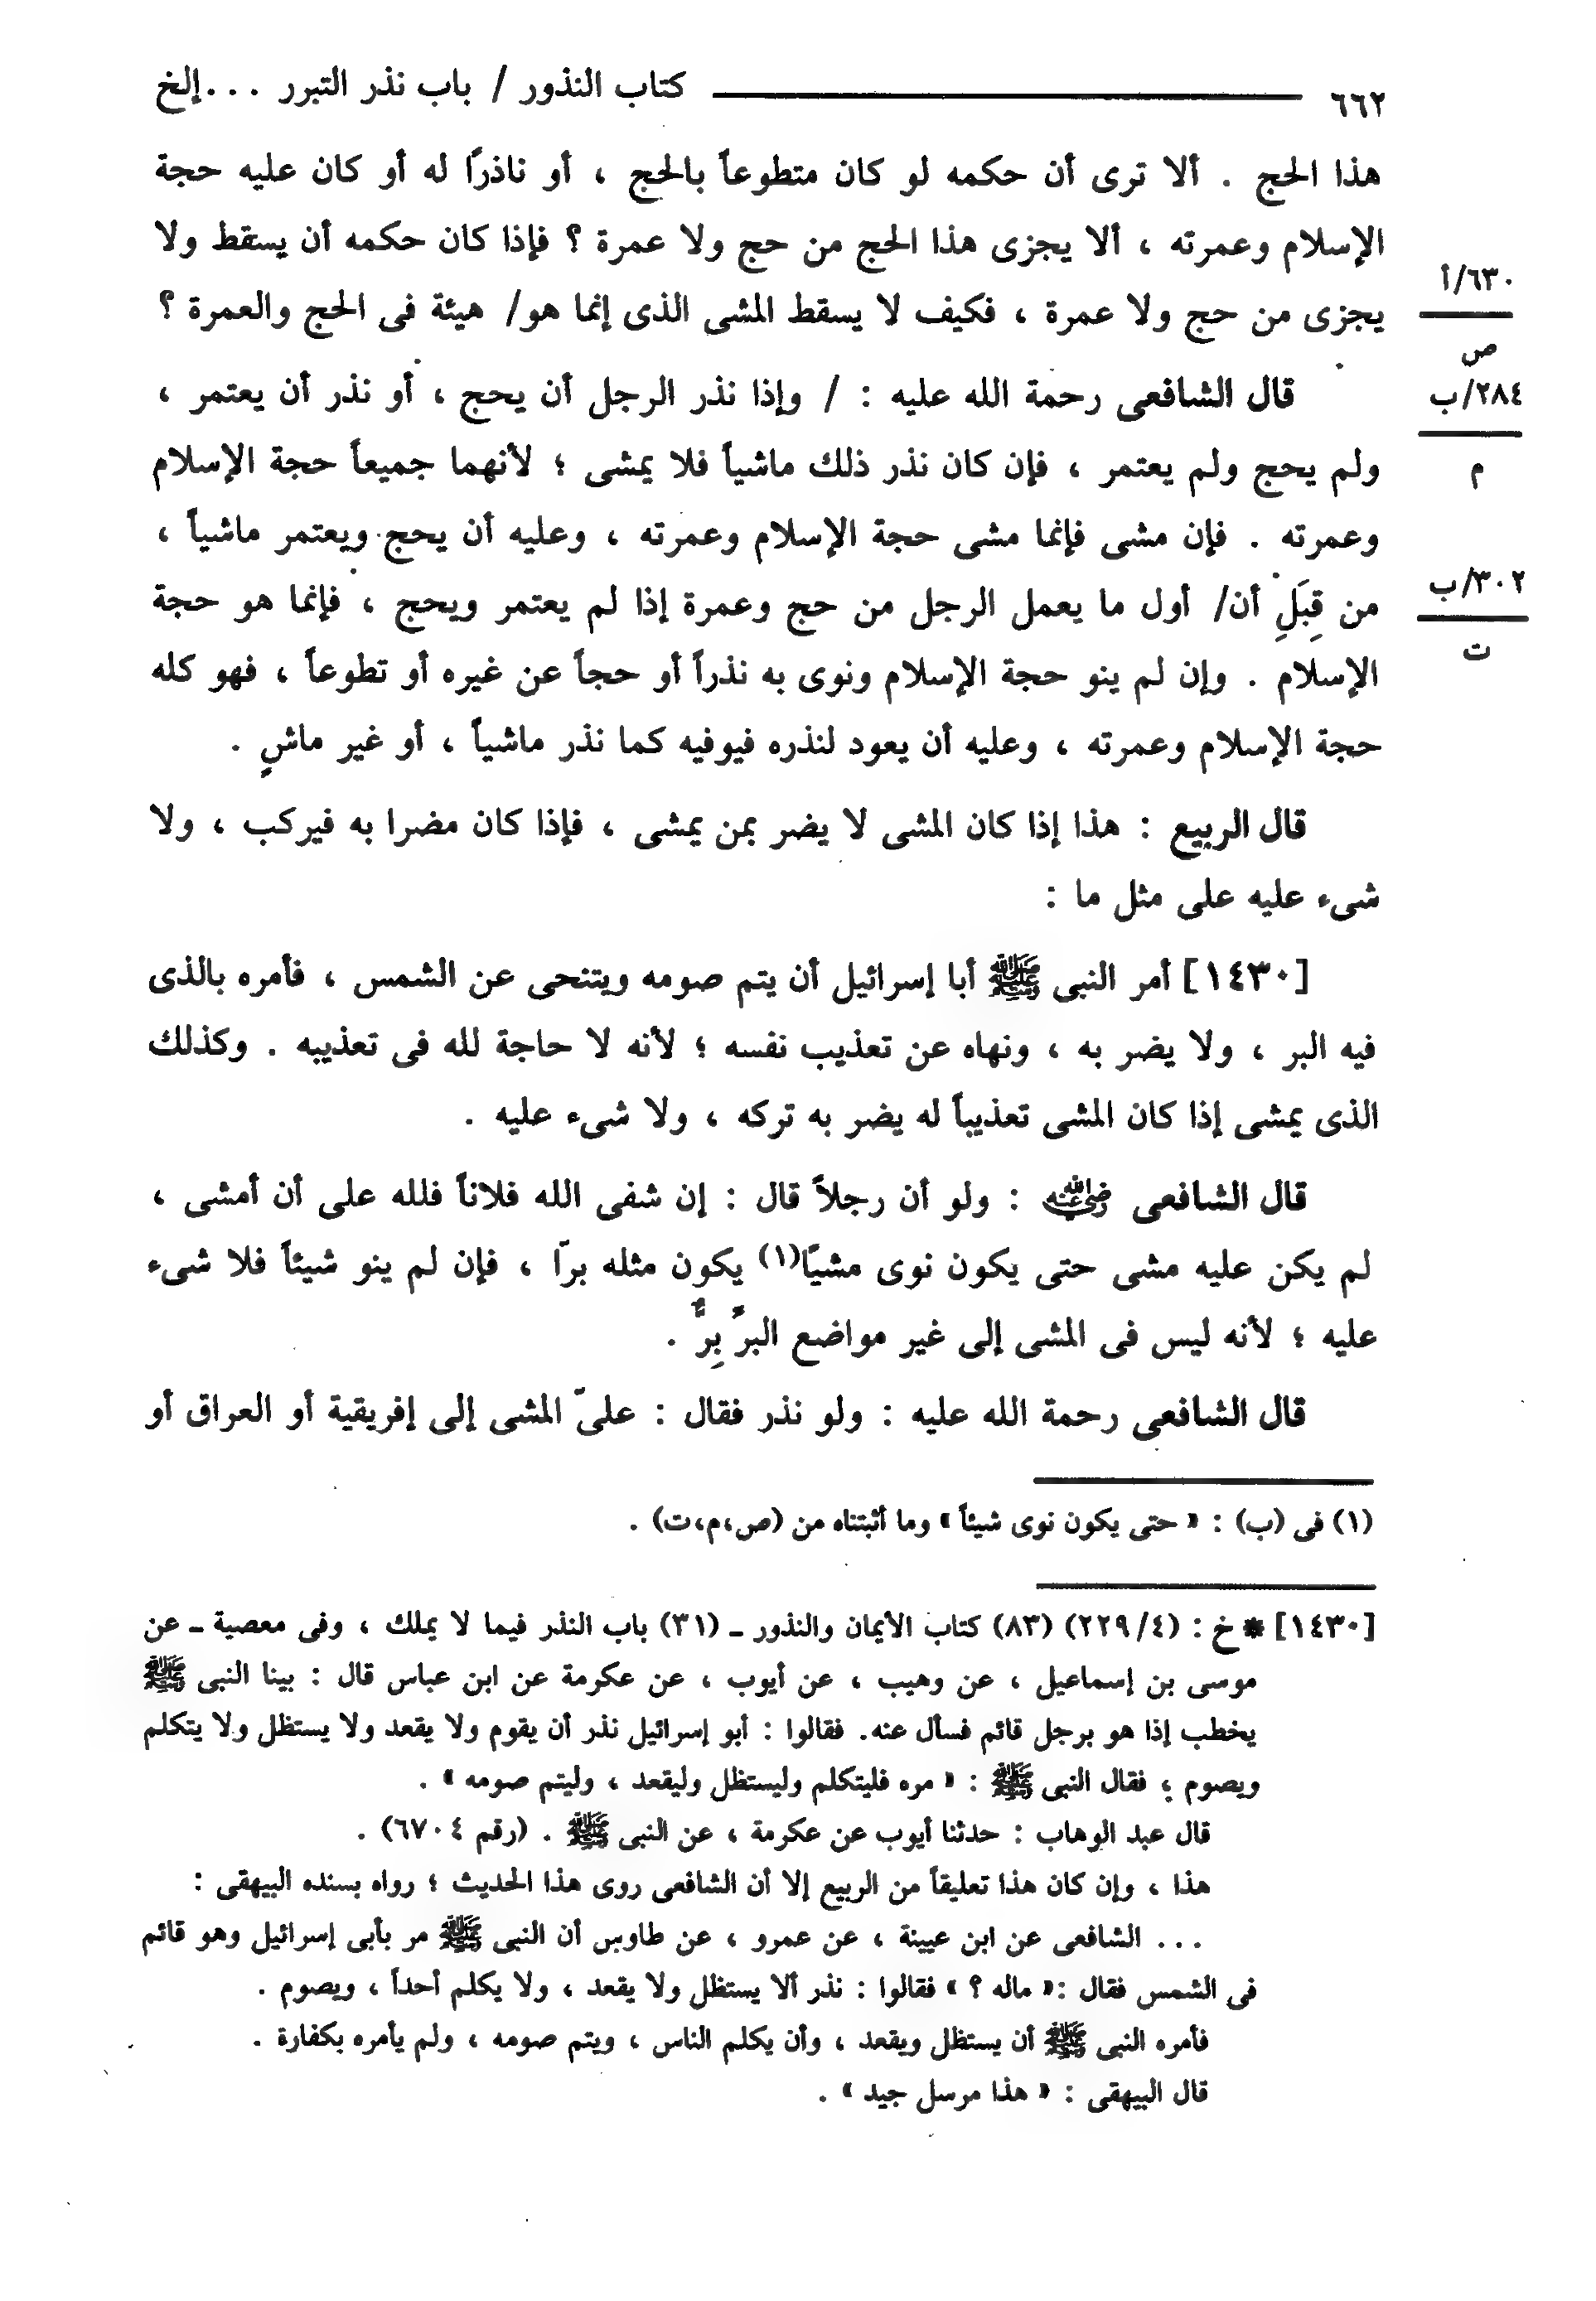 ٦٦٢ كتاب النذور / باب نذر التبرر . . . إلخ
هذا الحج . ألا ترى أن حكمه لو كان متطوعاً بالحج ، أو ناذرًا له أو كان عليه حجة
الإسلام وعمرته ، ألا يجزى هذا الحج من حج ولا عمرة ؟ فإذا كان حكمه أن يسقط ولا
٦٣٠/أ
يجزى من حج ولا عمرة ، فكيف لا يسقط المشى الذى إنما هو/ هيئة فى الحج والعمرة ؟
ص
قال الشافعى رحمة الله عليه : / وإذا نذر الرجل أن يحج ، أو نذر أن يعتمر ،
٢٨٤/ب
ولم يحج ولم يعتمر ، فإن كان نذر ذلك ماشياً فلا يمشى ؛ لأنهما جميعاً حجة الإسلام
م
وعمرته . فإن مشى فإنما مشى حجة الإسلام وعمرته ، وعليه أن يحج ويعتمر ماشياً ،
من قِبَلِ أن/ أول ما يعمل الرجل من حج وعمرة إذا لم يعتمر ويحج ، فإنما هو حجة
٣٠٢/ب
الإسلام . وإن لم ينو حجة الإسلام ونوى به نذراً أو حجاً عن غيره أو تطوعاً ، فهو كله
ت
حجة الإسلام وعمرته ، وعليه أن يعود لنذره فيوفيه كما نذر ماشياً ، أو غير ماشٍ .
قال الربيع : هذا إذا كان المشى لا يضر بمن يمشى ، فإذا كان مضرا به فيركب ، ولا
شىء عليه على مثل ما :
[١٤٣٠] أمر النبى ﷺ أبا إسرائيل أن يتم صومه ويتنحى عن الشمس ، فأمره بالذى
فيه البر ، ولا يضر به ، ونهاه عن تعذيب نفسه ؛ لأنه لا حاجة لله فى تعذيبه . وكذلك
الذى يمشى إذا كان المشى تعذيباً له يضر به تركه ، ولا شىء عليه .
قال الشافعى رضي الله عنه : ولو أن رجلاً قال : إن شفى الله فلاناً فلله على أن أمشى ،
لم يكن عليه مشى حتى يكون نوى مشيًا(١) يكون مثله برّا ، فإن لم ينو شيئاً فلا شىء
عليه ؛ لأنه ليس فى المشى إلى غير مواضع البرِّ بِرٌّ .
قال الشافعى رحمة الله عليه : ولو نذر فقال : علىّ المشى إلى إفريقية أو العراق أو
(١) فى (ب) : « حتى يكون نوى شيئاً » وما أثبتناه من (ص،م،ت) .
[١٤٣٠] * خ : (٢٢٩/٤) (٨٣) كتاب الأيمان والنذور ـ (٣١) باب النذر فيما لا يملك ، وفى معصية ـ عن
موسى بن إسماعيل ، عن وهيب ، عن أيوب ، عن عكرمة عن ابن عباس قال : بينا النبى ﷺ
يخطب إذا هو برجل قائم فسأل عنه. فقالوا : أبو إسرائيل نذر أن يقوم ولا يقعد ولا يستظل ولا يتكلم
ويصوم ؛ فقال النبى ﷺ : « مره فليتكلم وليستظل وليقعد ، وليتم صومه » .
قال عبد الوهاب : حدثنا أيوب عن عكرمة ، عن النبى ﷺ . (رقم ٦٧٠٤) .
هذا ، وإن كان هذا تعليقاً من الربيع إلا أن الشافعى روى هذا الحديث ؛ رواه بسنده البيهقى :
. . . الشافعى عن ابن عيينة ، عن عمرو ، عن طاوس أن النبى ﷺ مر بأبى إسرائيل وهو قائم
فى الشمس فقال :« ماله ؟ » فقالوا : نذر ألا يستظل ولا يقعد ، ولا يكلم أحداً ، ويصوم .
فأمره النبى ﷺ أن يستظل ويقعد ، وأن يكلم الناس ، ويتم صومه ، ولم يأمره بكفارة .
قال البيهقى : « هذا مرسل جيد » .